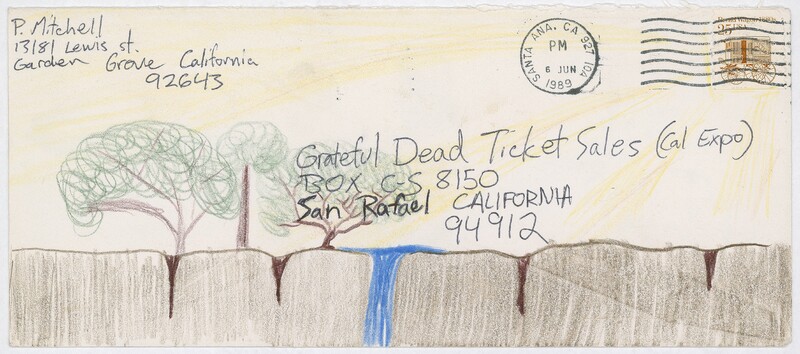 P. Mitchell
13181 Lewis st.
Garden Grove California
92643
SANTA ANA, CA 927
PM
6 JUN
1989
10A
Bread Wagon 1880s
25 USA
Grateful Dead Ticket Sales (Cal Expo)
BOX C-S 8150
San Rafael CALIFORNIA
94912